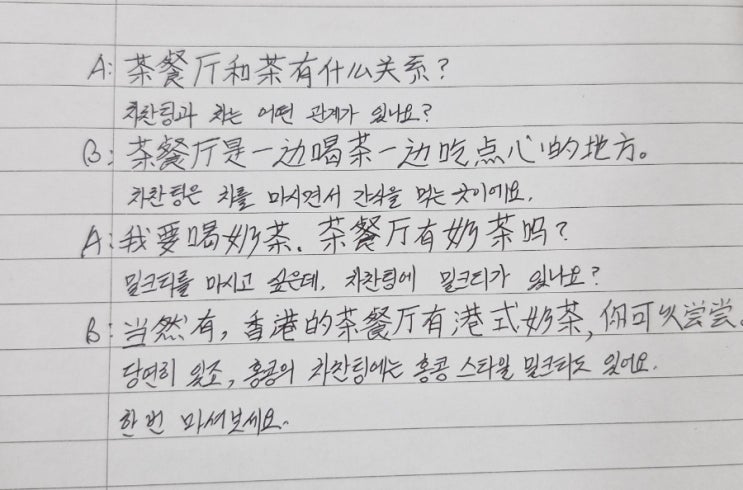 A: 茶餐厅和茶有什么关系?
차찬팅과 차는 어떤 관계가 있나요?
B: 茶餐厅是一边喝茶一边吃点心的地方。
차찬팅은 차를 마시면서 간식을 먹는 곳이에요.
A: 我要喝奶茶. 茶餐厅有奶茶吗?
밀크티를 마시고 싶은데, 차찬팅에 밀크티가 있나요?
B: 当然有, 香港的茶餐厅有港式奶茶, 你可以尝尝。
당연히 있죠, 홍콩의 차찬팅에는 홍콩 스타일 밀크티도 있어요.
한 번 마셔보세요.